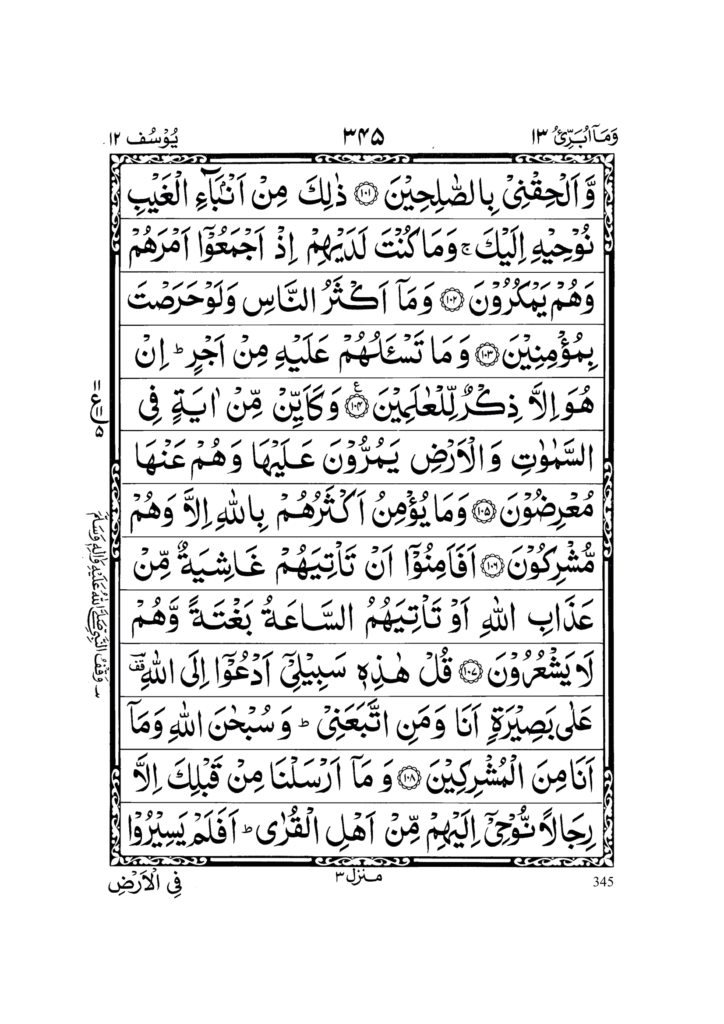 وَمَاۤ اُبَرِّئُ ١٣ ٣٤٥ يُوْسُف ١٢
وَّاَلْحِقْنِىْ بِالصّٰلِحِيْنَ ﴿١٠١﴾ ذٰلِكَ مِنْ اَنْۢبَآءِ الْغَيْبِ
نُوْحِيْهِ اِلَيْكَ ۚ وَمَا كُنْتَ لَدَيْهِمْ اِذْ اَجْمَعُوْۤا اَمْرَهُمْ
وَهُمْ يَمْكُرُوْنَ ﴿١٠٢﴾ وَمَاۤ اَكْثَرُ النَّاسِ وَلَوْ حَرَصْتَ
بِمُؤْمِنِيْنَ ﴿١٠٣﴾ وَمَا تَسْـَٔلُهُمْ عَلَيْهِ مِنْ اَجْرٍ ؕ اِنْ
هُوَ اِلَّا ذِكْرٌ لِّلْعٰلَمِيْنَ ﴿١٠٤﴾ ع وَكَاَيِّنْ مِّنْ اٰيَةٍ فِى
السَّمٰوٰتِ وَالْاَرْضِ يَمُرُّوْنَ عَلَيْهَا وَهُمْ عَنْهَا
مُعْرِضُوْنَ ﴿١٠٥﴾ وَمَا يُؤْمِنُ اَكْثَرُهُمْ بِاللّٰهِ اِلَّا وَهُمْ
مُّشْرِكُوْنَ ﴿١٠٦﴾ اَفَاَمِنُوْۤا اَنْ تَاْتِيَهُمْ غَاشِيَةٌ مِّنْ
عَذَابِ اللّٰهِ اَوْ تَاْتِيَهُمُ السَّاعَةُ بَغْتَةً وَّهُمْ
لَا يَشْعُرُوْنَ ﴿١٠٧﴾ قُلْ هٰذِهٖ سَبِيْلِىْۤ اَدْعُوْۤا اِلَى اللّٰهِ ؔقف
عَلٰى بَصِيْرَةٍ اَنَا وَمَنِ اتَّبَعَنِىْ ؕ وَسُبْحٰنَ اللّٰهِ وَمَاۤ
اَنَا مِنَ الْمُشْرِكِيْنَ ﴿١٠٨﴾ وَمَاۤ اَرْسَلْنَا مِنْ قَبْلِكَ اِلَّا
رِجَالًا نُّوْحِىْۤ اِلَيْهِمْ مِّنْ اَهْلِ الْقُرٰى ؕ اَفَلَمْ يَسِيْرُوْا
فِى الْاَرْضِ
منزل ٣
345
ع ۵
وَقْفُ النَّبِىِّ صَلَّى اللّٰهُ عَلَيْهِ وَاٰلِهٖ وَسَلَّمَ